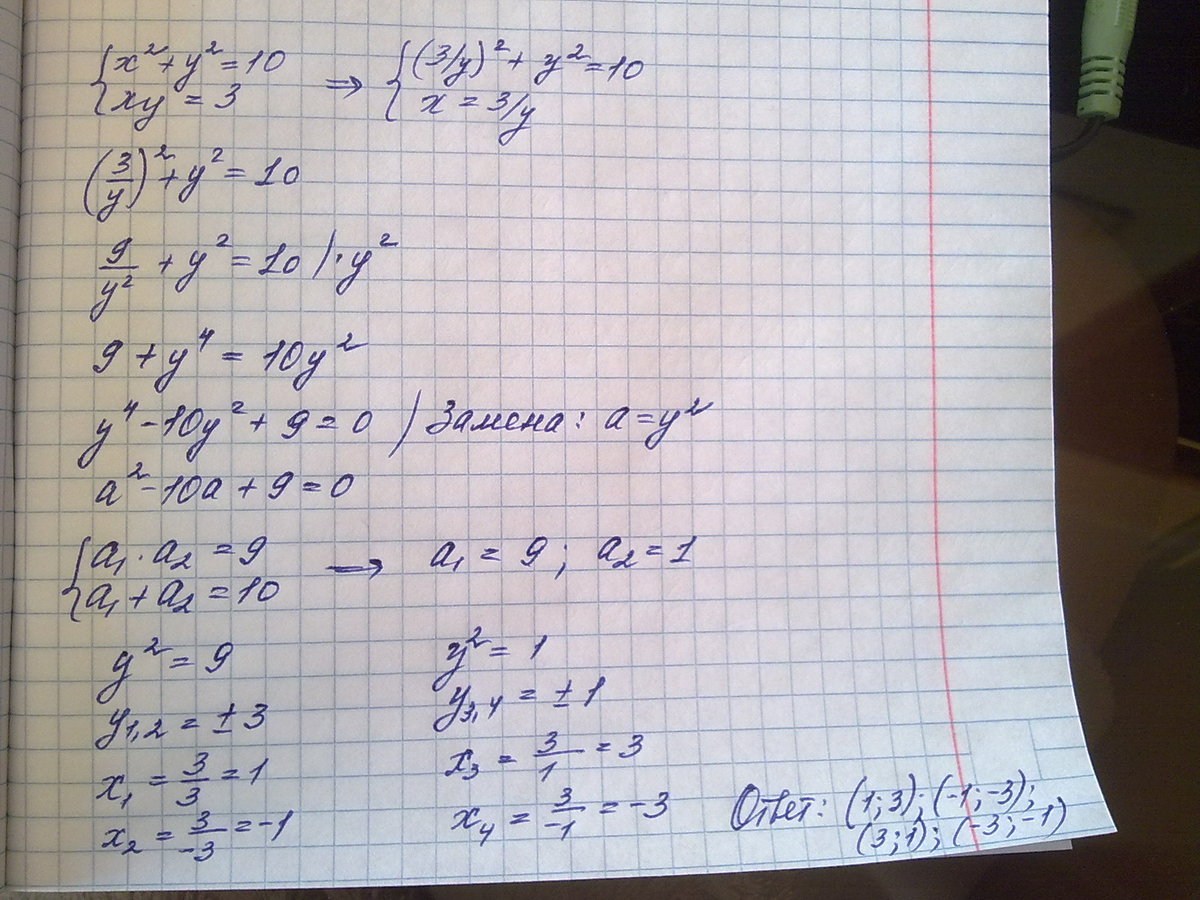 {x²+y²=10 ⇒ {(3/y)²+ y²=10
{xy = 3 {x = 3/y
(3/y)²+y²= 10
9/y² + y²=10 /·y²
9+y⁴ = 10y²
y⁴-10y²+ 9=0 / Замена: a=y²
a²-10a+9=0
{a₁·a₂=9 → a₁= 9; a₂=1
{a₁+a₂=10
y²=9 y²=1
y₁,₂=±3 y₃,₄=±1
x₁=3/3=1 x₃=3/1=3
x₂=3/-3=-1 x₄=3/-1=-3
Ответ: (1;3); (-1;-3);
(3;1); (-3;-1)